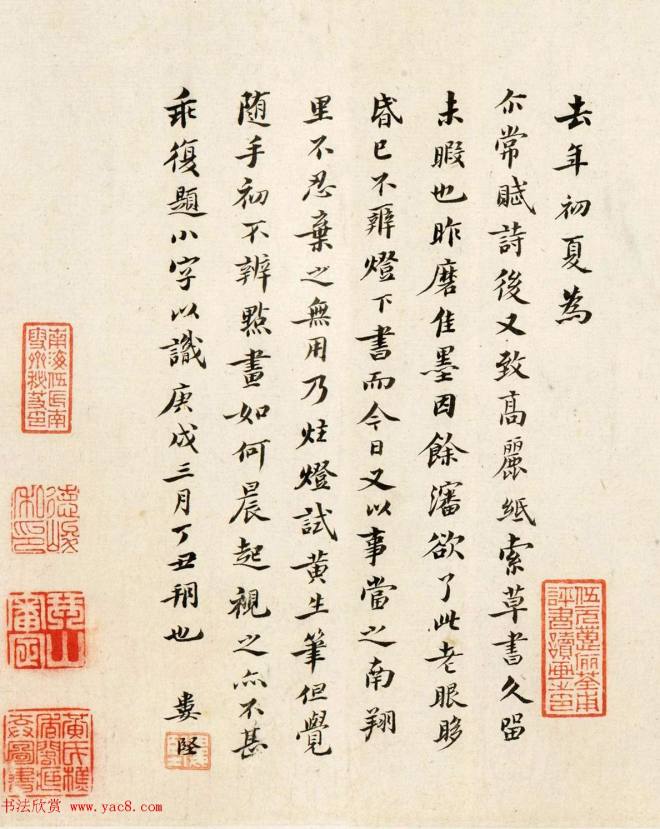 去年初夏為
尒常賦詩後又致高麗紙索草書久留
未暇也昨磨佳墨因餘瀋欲了此老眼眵
昏已不辨燈下書而今日又以事當之南翔
里不忍棄之無用乃炷燈試黃生筆但覺
隨手初不辨點畫如何晨起視之亦不甚
乖復題小字以識庚戌三月丁丑朔也
婁堅
書法欣賞 www.yac8.com